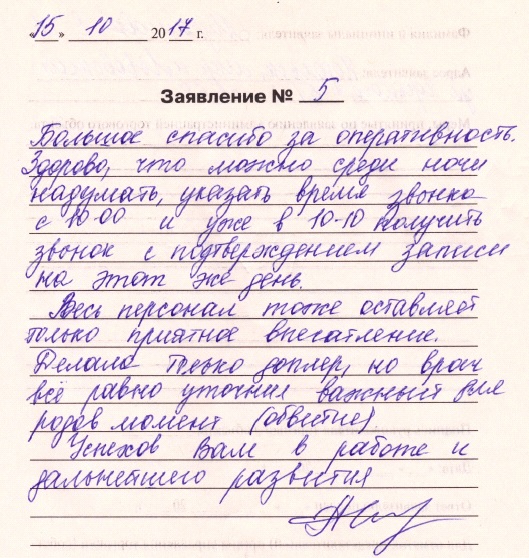 «15» 10 2017 г.
Заявление № 5
Большое спасибо за оперативность.
Здорово, что можно среди ночи
надумать, указать время звонка
с 10-00 и уже в 10-10 получить
звонок с подтверждением записи
на этот же день.
Весь персонал тоже оставляет
только приятное впечатление.
Делала только доплер, но врач
всё равно уточнил важный для
родов момент (обвитие)
Успехов Вам в работе и
дальнейшего развития